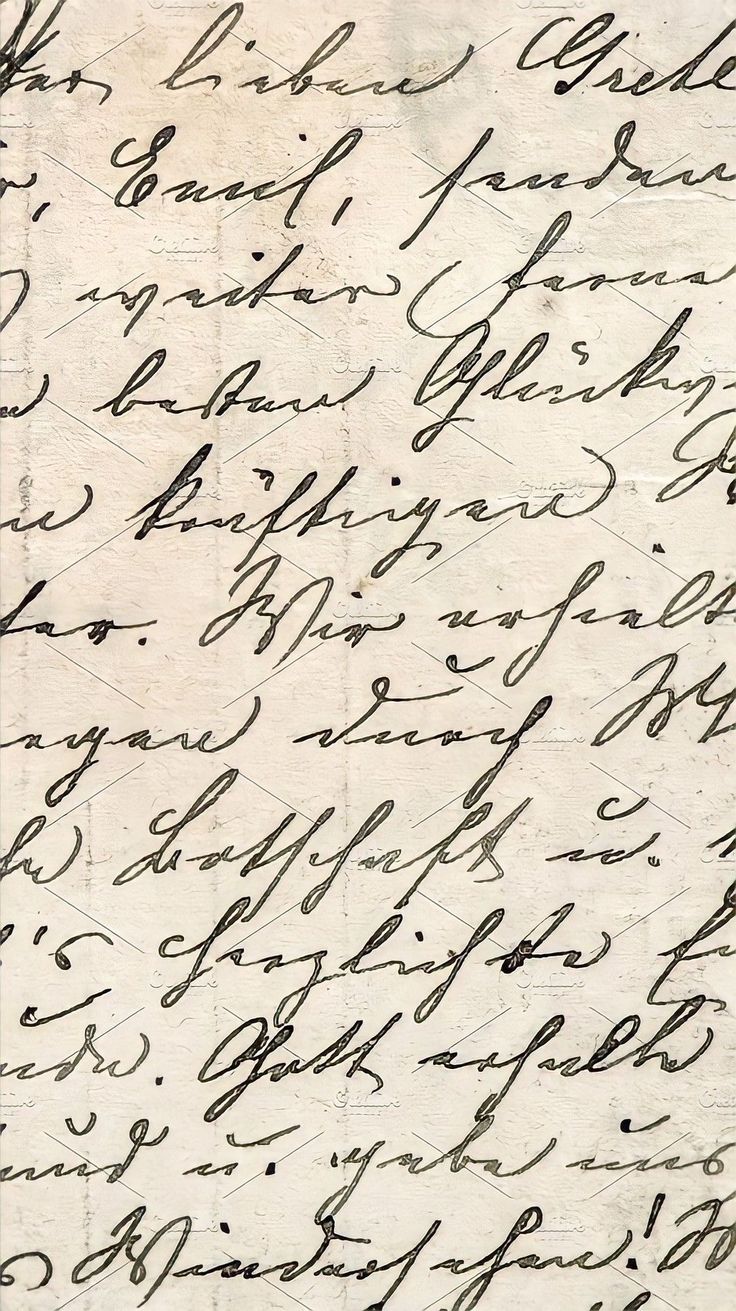 der lieben Grete
r, Emil, senden
weiter Ferne
n besten Glückw
n kräftigen
ter. Wir erhielt
egen durch
he Botschaft u.
's herzlichste
ude. Gott erhalte
und u. gebe uns
Wiedersehen!